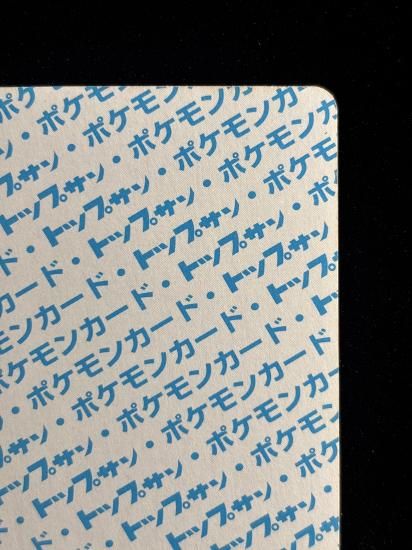 ポケ
・ポケモン
トップサン・ポケモンカード
トップサン・ポケモンカー
ド・トップサン・ポケモ
カード・トップサン・ポ
モンカード・トップサン・
ケモンカード・トップサン
ポケモンカード・トップ
・ポケモンカード・
サン・ポケモンカード
トップサン・ポケモンカー
・トップサン・ポケモン
・トップサン・ポケ
トップサン・
トップ